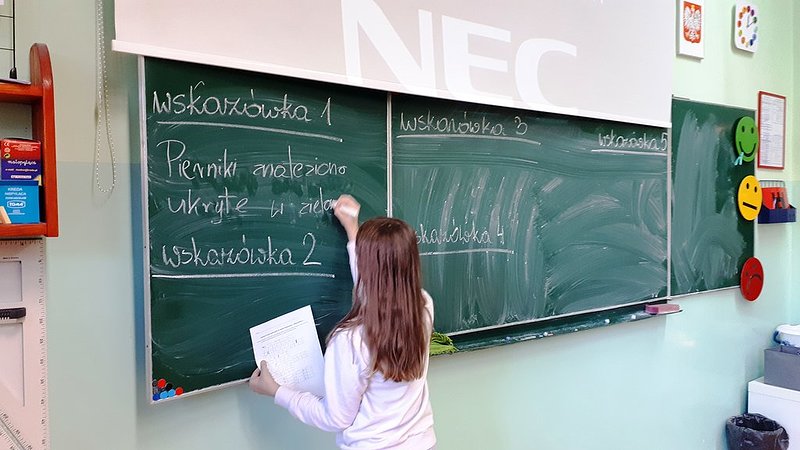 NEC
wskazówka 1
Pierniki znaleziono
ukryte w
wskazówka 2
wskazówka 3
wskazówka 4
wskazówka 5
KREDA